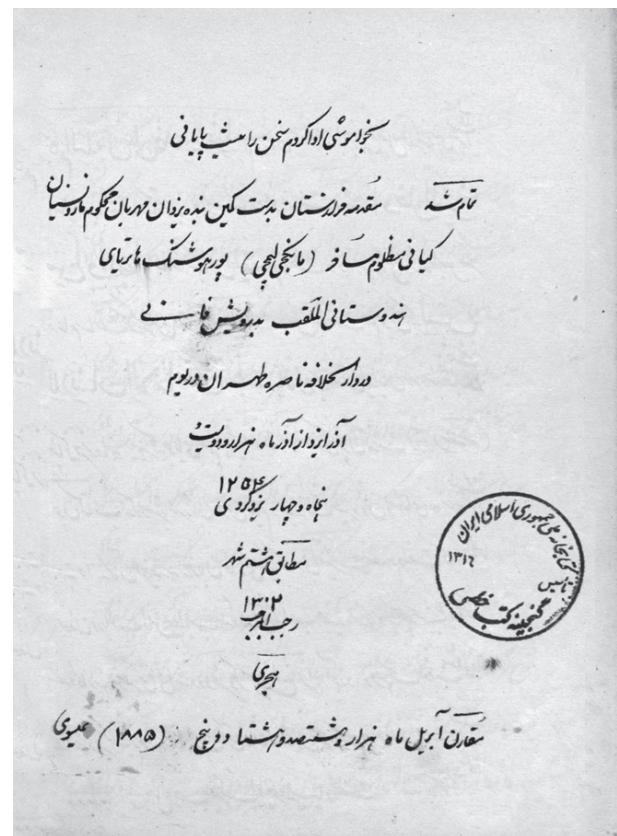 بخاموشی ادا کردم سخن را میت پایانی
تمام شد مقدمه فرازستان بدست کمین بنده یزدان مهربان محکوم مارونسیان
کیانی مظلوم مسافر (مانکجی لیمجی) پور هوشنگ هاتریای
هندوستانی الملقب بدرویش فانی
در دار الخلافه ناصره طهران در یوم
آذر ایزد از آذر ماه هزار و دویست و
۱۲۵۴
پنجاه و چهار یزدگردی
مطابق هشتم شهر
۱۳۰۲
رجب المرجب
هجری
مقارن آبریل ماه هزار و هشتصد و هشتاد و پنج (۱۸۸۵) عیسوی
کتابخانه ملی جمهوری اسلامی ایران
تاسیس
۱۳۱۶
گنجینه کتب خطی